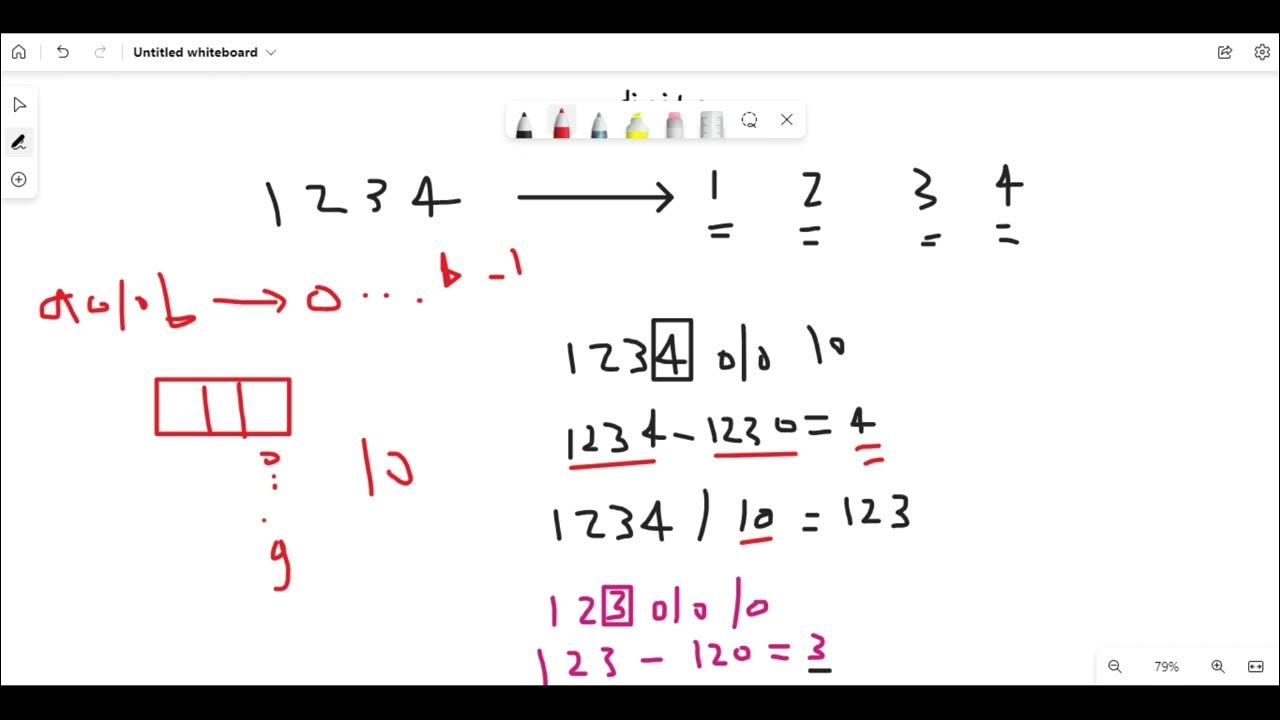 Untitled whiteboard
digits
1 2 3 4 → 1 2 3 4
a % b → 0 ... b - 1
1234 % 10
1234 - 1230 = 4
10
0
:
.
9
1234 / 10 = 123
123 % 10
123 - 120 = 3
79%